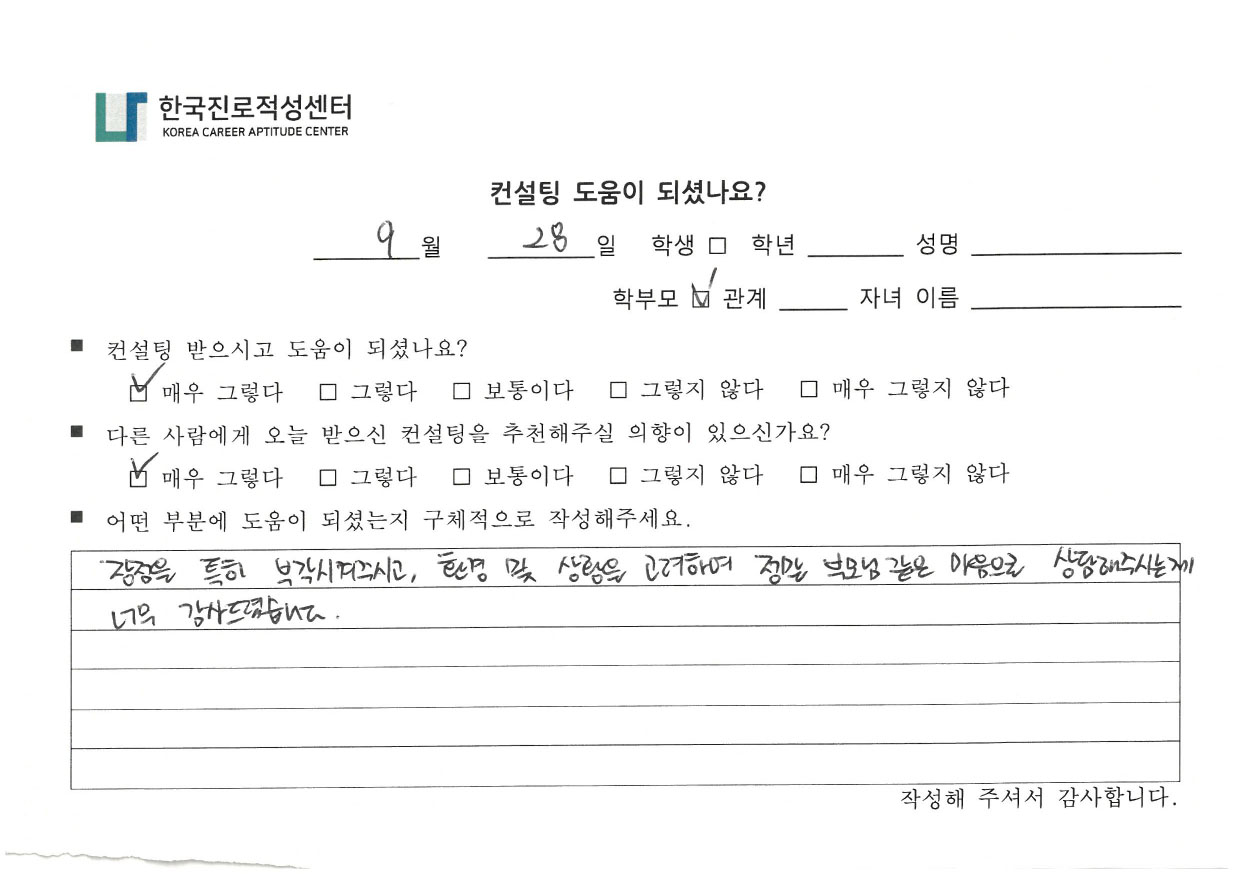 한국진로적성센터
KOREA CAREER APTITUDE CENTER
컨설팅 도움이 되셨나요?
9 월 28 일 학생 □ 학년 성명
학부모 ☑ 관계 자녀 이름
■ 컨설팅 받으시고 도움이 되셨나요?
☑ 매우 그렇다 □ 그렇다 □ 보통이다 □ 그렇지 않다 □ 매우 그렇지 않다
■ 다른 사람에게 오늘 받으신 컨설팅을 추천해주실 의향이 있으신가요?
☑ 매우 그렇다 □ 그렇다 □ 보통이다 □ 그렇지 않다 □ 매우 그렇지 않다
■ 어떤 부분에 도움이 되셨는지 구체적으로 작성해주세요.
장점을 특히 부각시켜주시고, 환경 및 상황을 고려하여 정말 부모님 같은 마음으로 상담해주시는게
너무 감사드렸습니다.
작성해 주셔서 감사합니다.